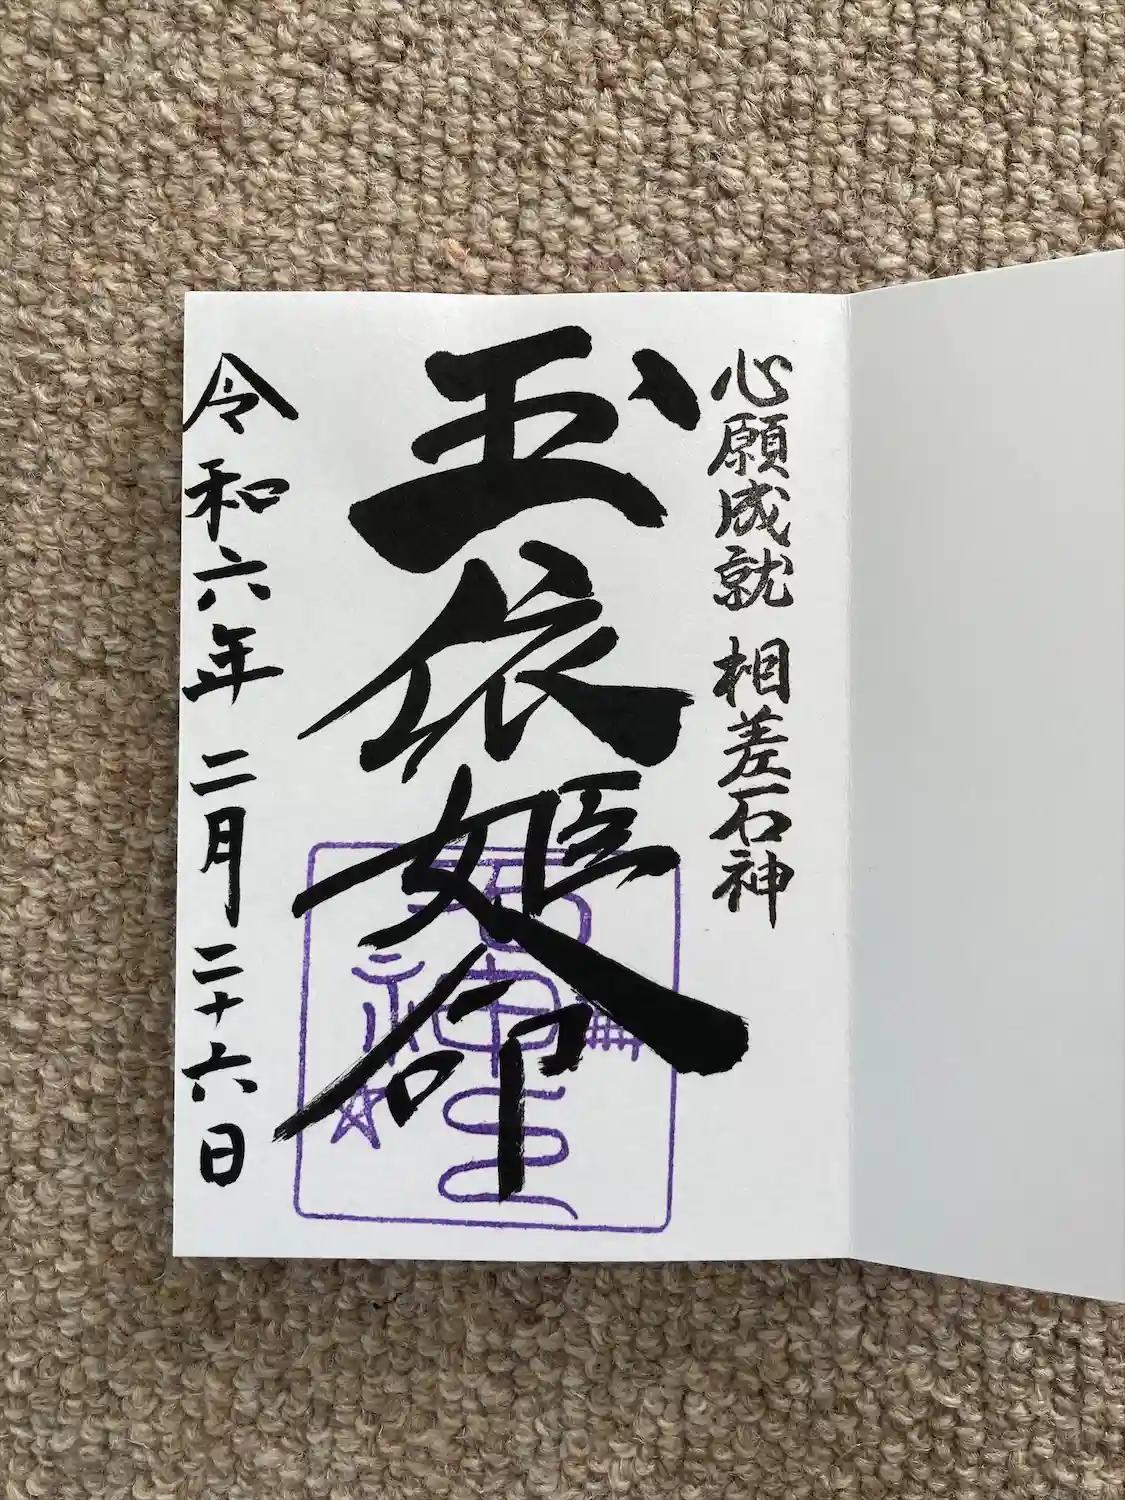 心願成就 相差石神
玉依姫命
石神
令和六年 二月二十六日